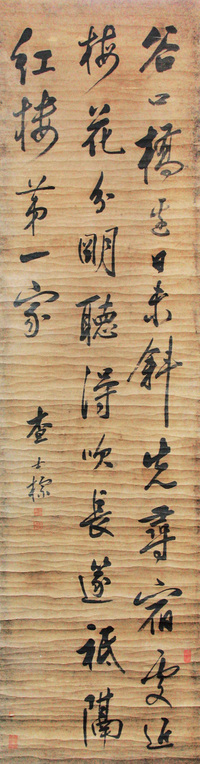 谷口橋邊日未斜先尋宿處近
梅花分明聽得吹長邃祗隔
紅樓第一家
查士標